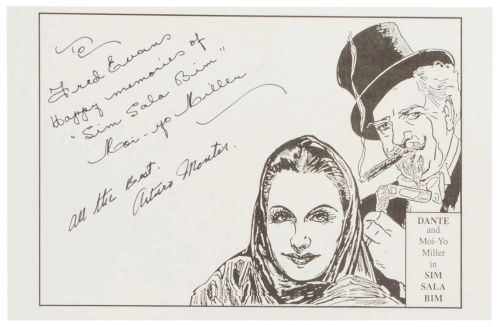 To
Fred Evans
Happy memories of
"Sim Sala Bim"
Moi-Yo Miller
All the Best.
Arturo Montes.
DANTE
and
Moi-Yo
Miller
in
SIM
SALA
BIM